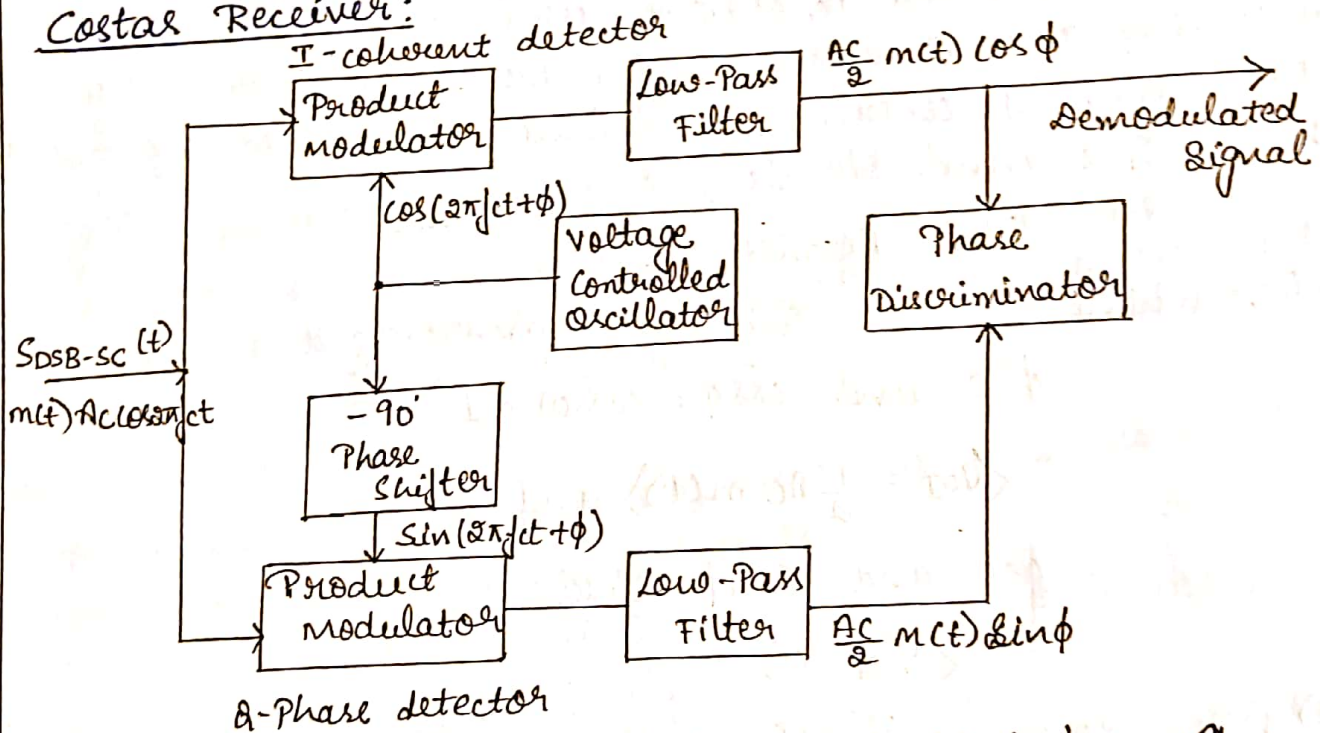 Costas Receiver:
I-coherent detector
Product
Modulator
Low-Pass
Filter
AC/2 m(t) cos ϕ
Demodulated
Signal
cos(2πfct+ϕ)
Voltage
Controlled
Oscillator
Phase
Discriminator
SDSB-SC (t)
m(t) Ac cos2πfct
-90°
Phase
Shifter
Sin(2πfct+ϕ)
Product
Modulator
Low-Pass
Filter
AC/2 m(t) Sinϕ
Q-Phase detector